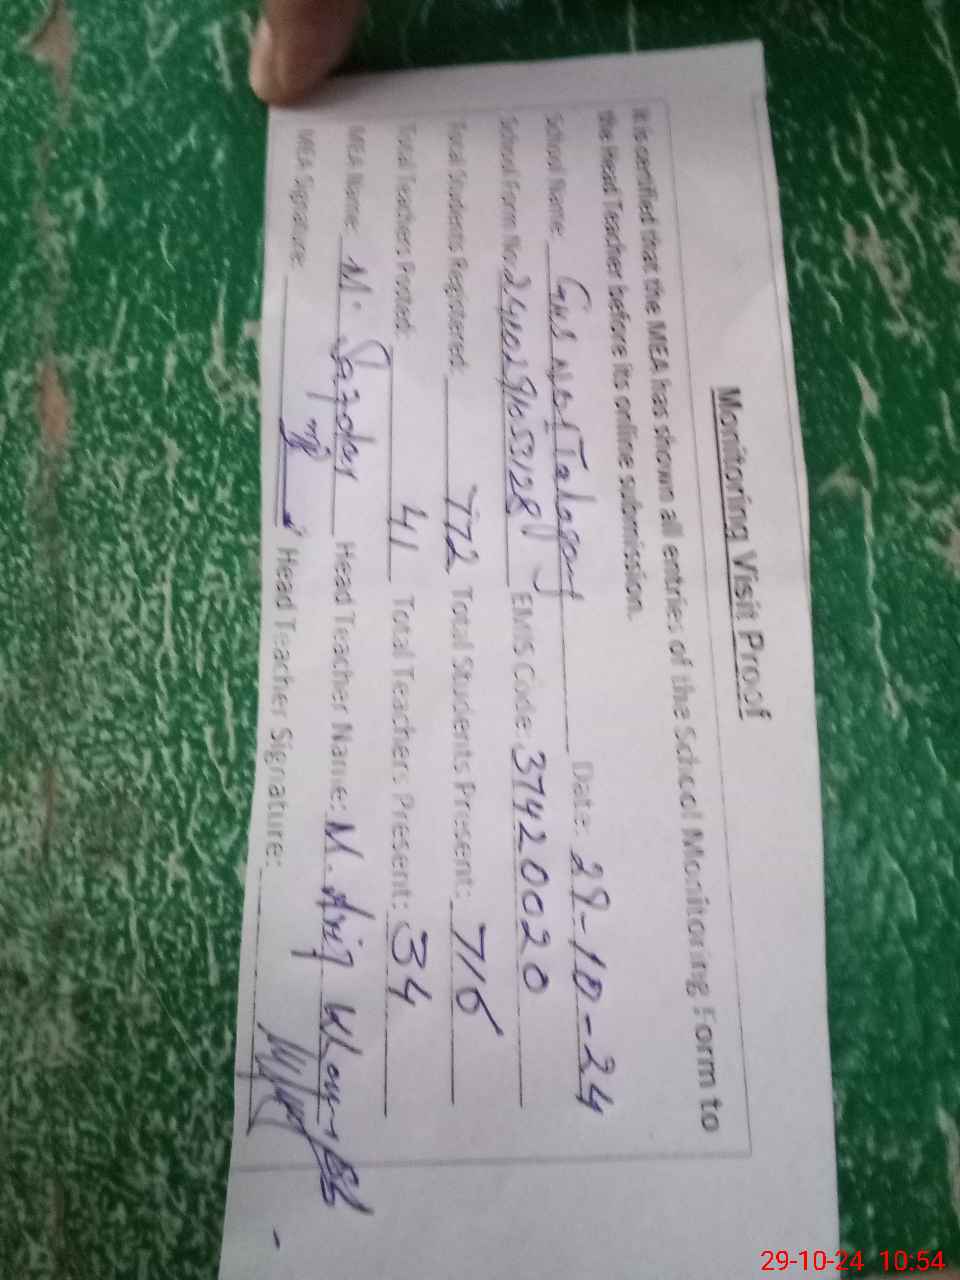 Monitoring Visit Proof
It is certified that the MEA has shown all entries of the School Monitoring Form to
the Head Teacher before its online submission.
School Name: Date: 29-10-24
School Form No. EMIS Code: 37420020
Total Students Registered: 772 Total Students Present: 716
Total Teachers Posted: 41 Total Teachers Present: 34
MEA Name: M. Head Teacher Name: M. Arif
MEA Signature: Head Teacher Signature:
29-10-24 10:54